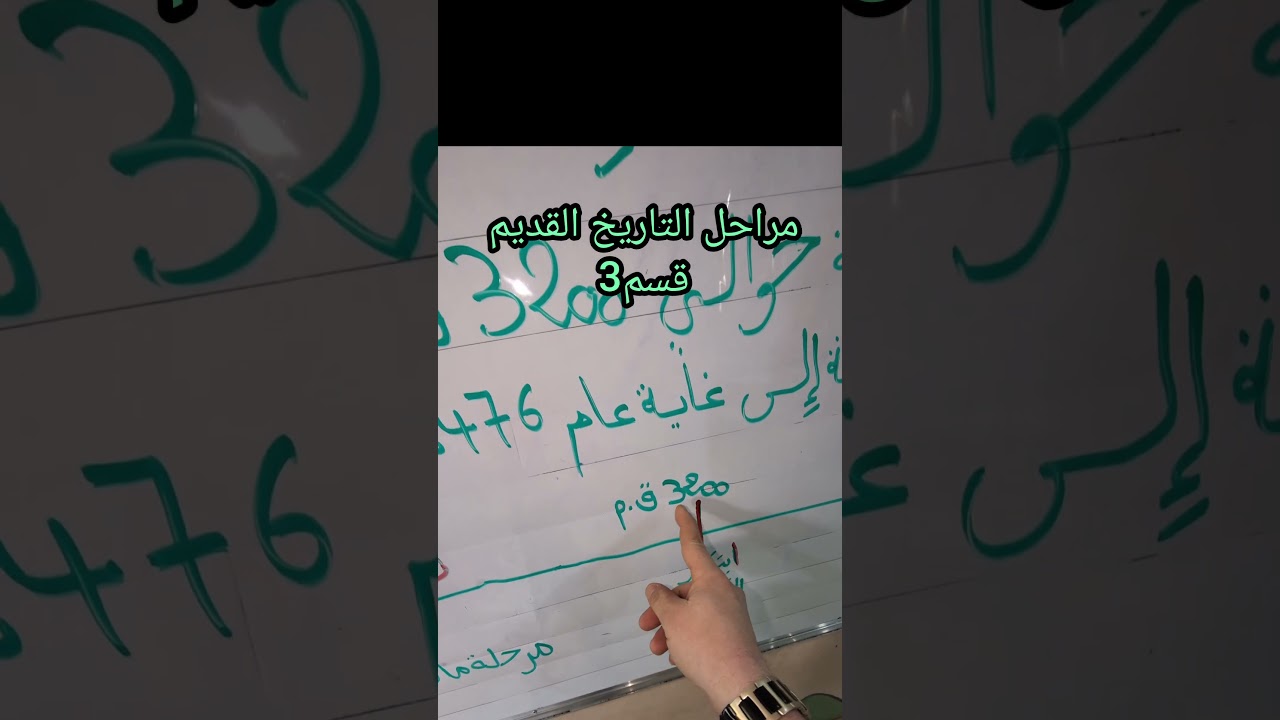 مراحل التاريخ القديم
قسم3
حوالي 3200
إلى غاية عام 476
3200 ق.م
مرحلة ما